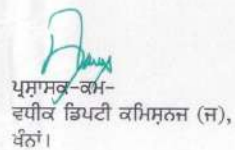 ਪ੍ਰਸ਼ਾਸਕ-ਕਮ-
ਵਧੀਕ ਡਿਪਟੀ ਕਮਿਸ਼ਨਜ (ਜ),
ਖੰਨਾਂ।